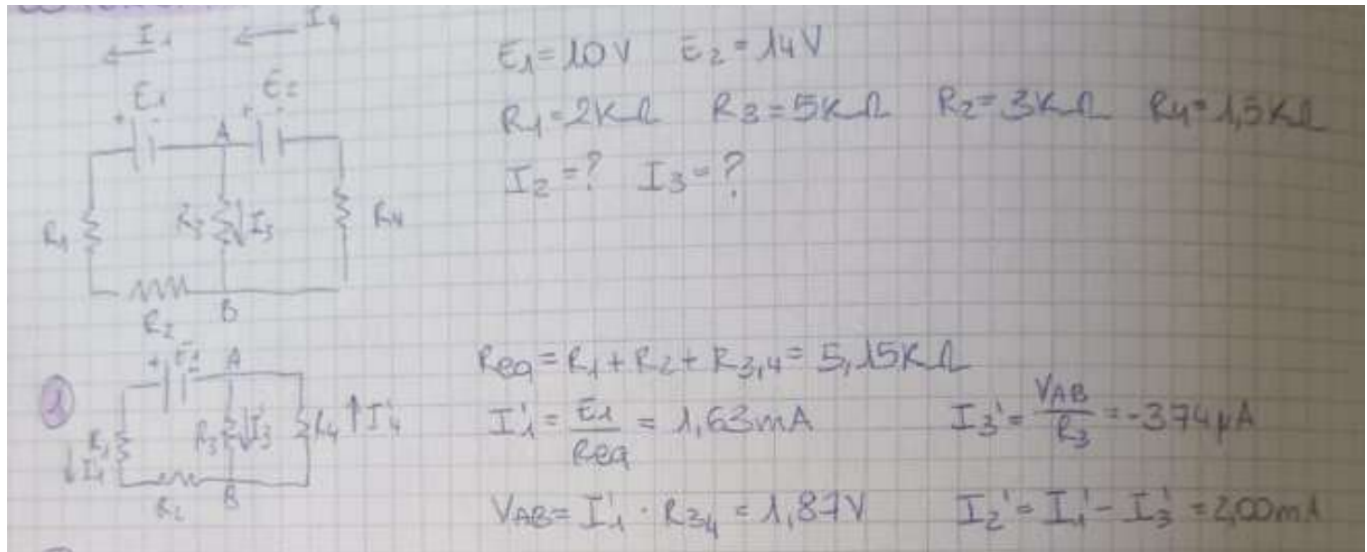 I1 I4
E1 E2
+ - + -
A
R1 R3 I3 R4
B
R2
E1=10V E2=14V
R1=2KΩ R3=5KΩ R2=3KΩ R4=1,5KΩ
I2=? I3=?
1
+ E1 - A
R1 I1' R3 I3' R4 I4'
R2 B
Req=R1+R2+R3,4=5,15KΩ
I1'=E1/Req=1,63mA I3'=VAB/R3=-374μA
VAB=I1'·R34=1,87V I2'=I1'-I3'=2,00mA